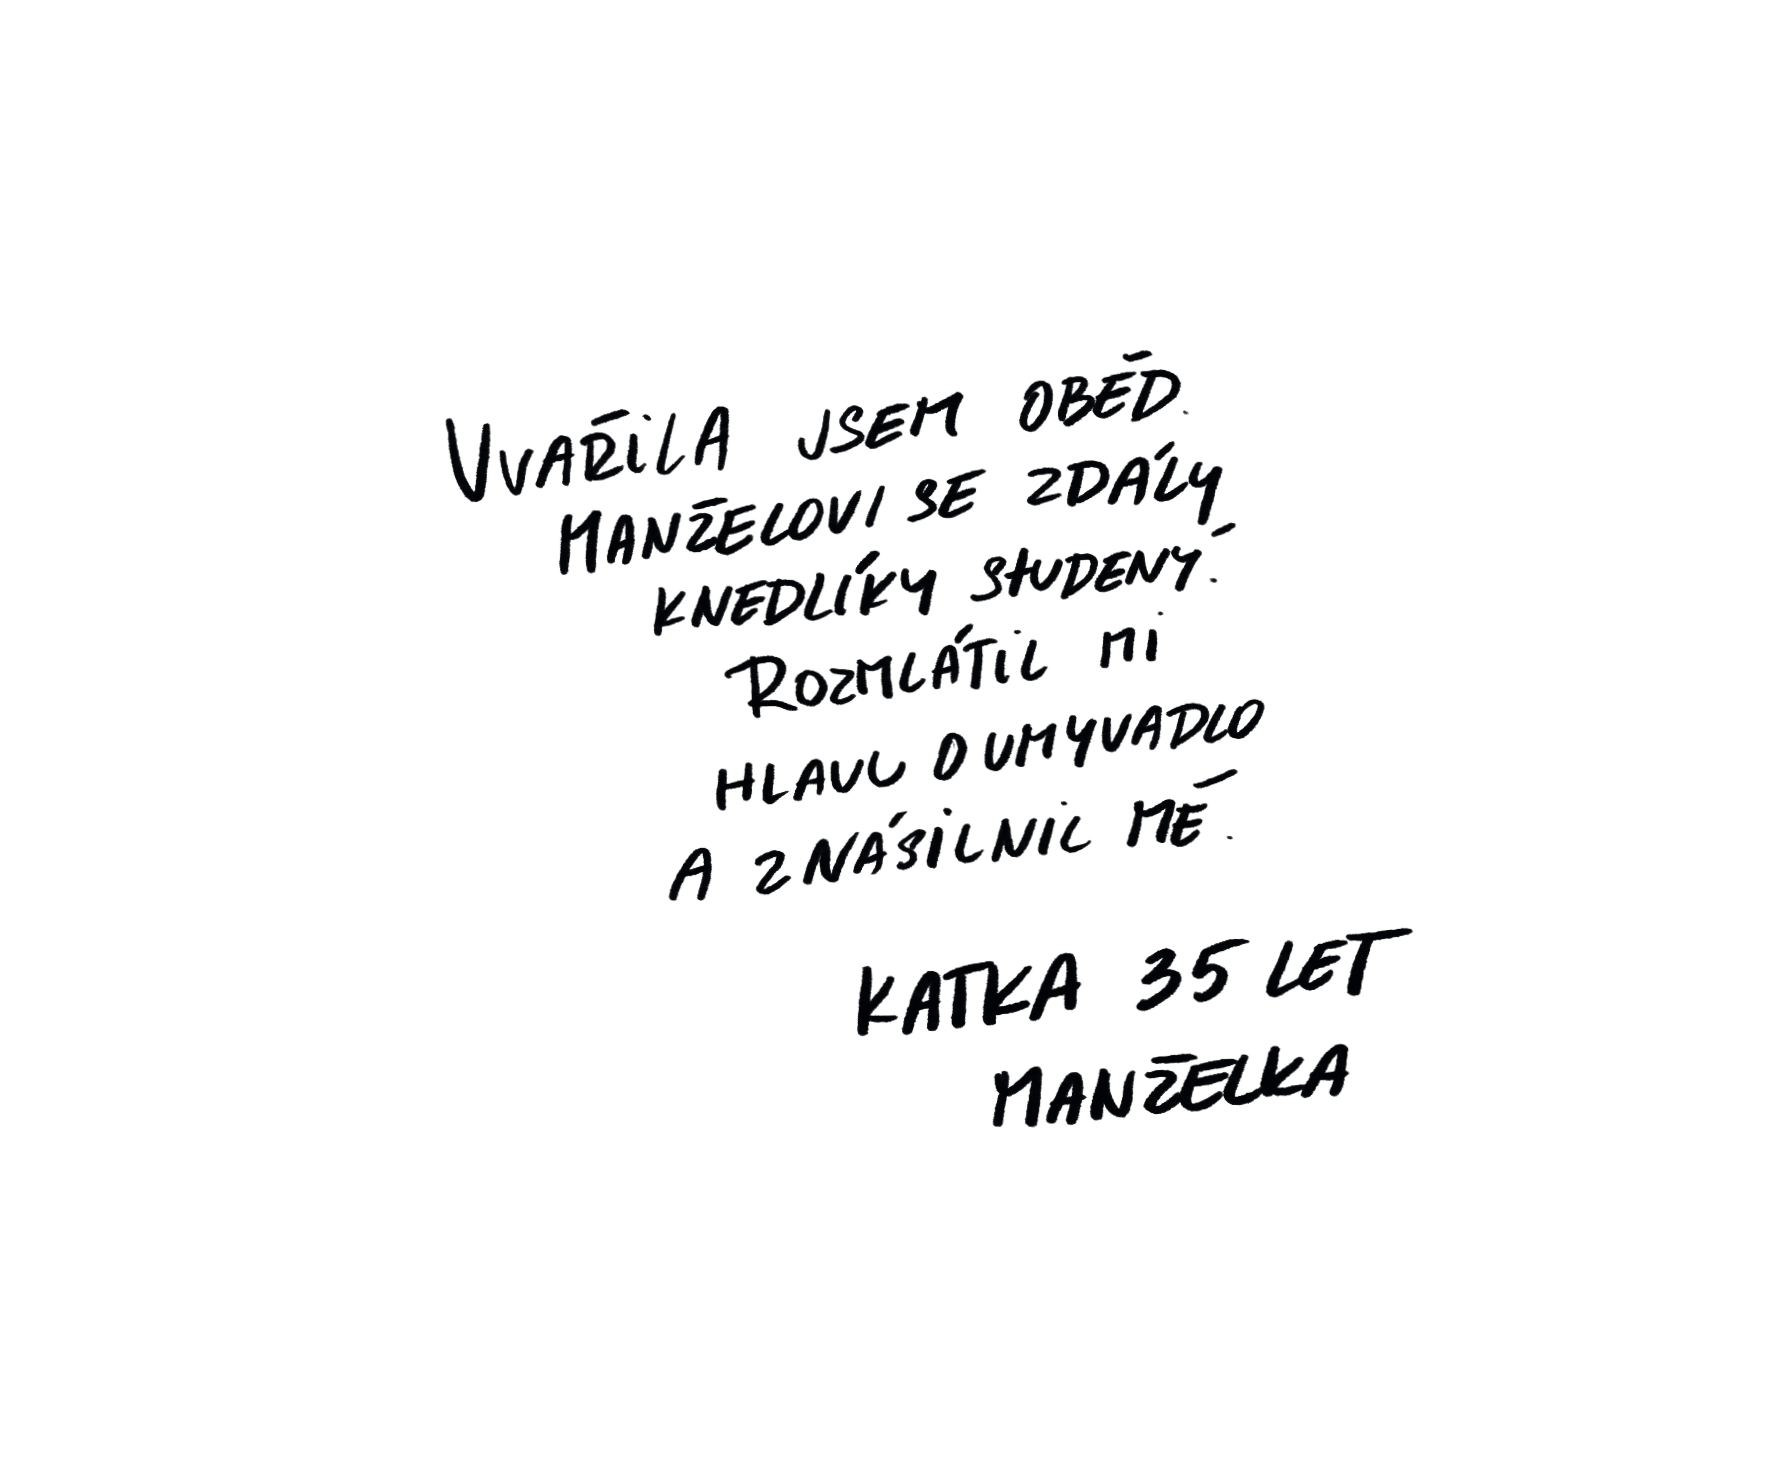 UVAŘILA JSEM OBĚD.
MANŽELOVI SE ZDÁLY
KNEDLÍKY STUDENÝ.
ROZMLÁTIL MI
HLAVU O UMYVADLO
A ZNÁSILNIL MĚ.
KATKA 35 LET
MANŽELKA